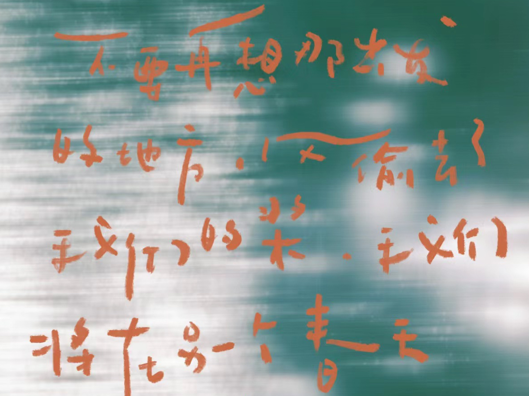 不要再想那出发
的地方，风偷去了
我们的桨．我们
将在另一个春天